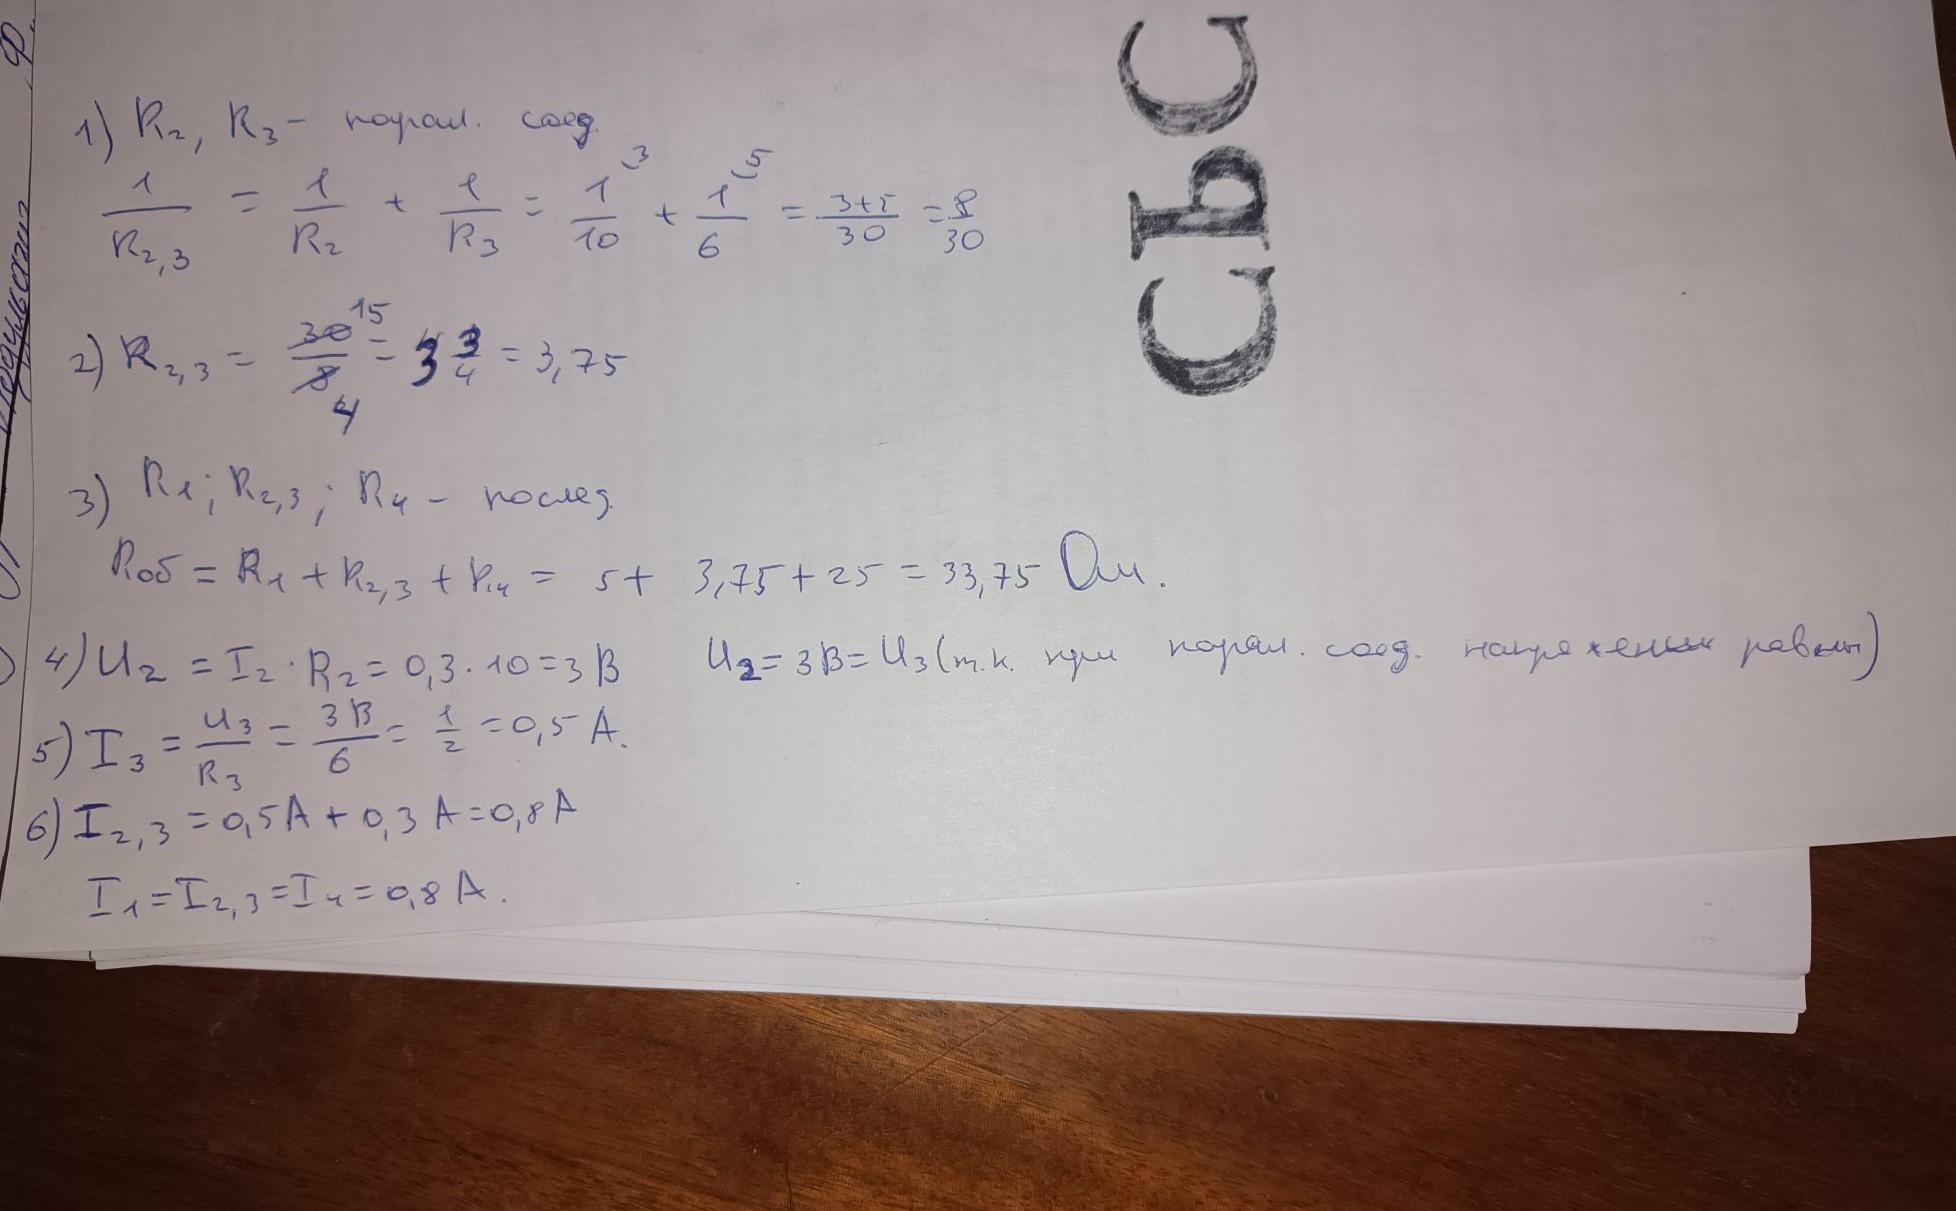 1) R₂, R₃ - парал. соед.
1/R₂,₃ = 1/R₂ + 1/R₃ = 1/10 ⁽³ + 1/6 ⁽⁵ = 3+5/30 = 8/30
2) R₂,₃ = 30/8 15/4 = 3 3/4 = 3,75
3) R₁; R₂,₃; R₄ - послед.
Rоб = R₁ + R₂,₃ + R₄ = 5 + 3,75 + 25 = 33,75 Ом.
4) U₂ = I₂ · R₂ = 0,3 · 10 = 3 В U₂ = 3В = U₃ (т.к. при парал. соед. напряжения равны)
5) I₃ = U₃/R₃ = 3 В/6 = 1/2 = 0,5 А.
6) I₂,₃ = 0,5 А + 0,3 А = 0,8 А
I₁ = I₂,₃ = I₄ = 0,8 А.
СЬС